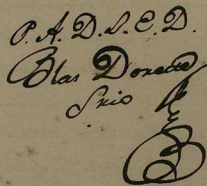 P. A. D. S. E. D.
Blas Dorado
Srio